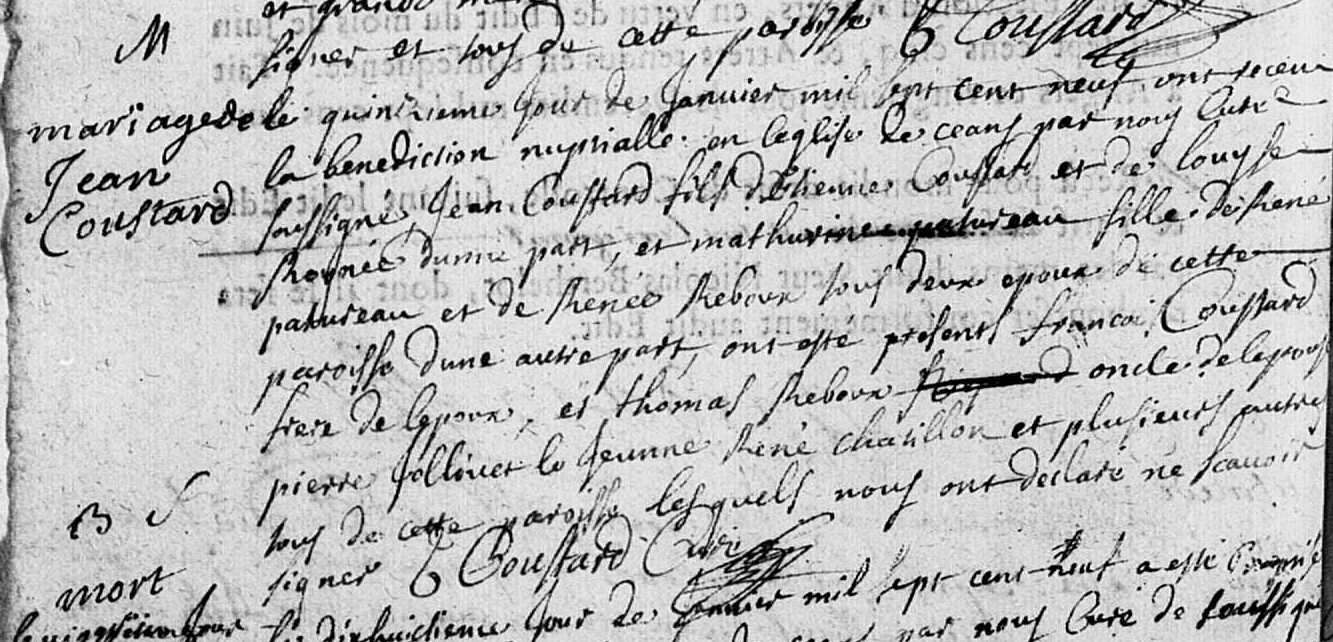 M
signer et tous de cette paroisse C Coustard
mariage de
Jean
Coustard
le quinzieme jour de Janvier mil sept cent neuf ont receu
la benediction nuptialle en leglise de ceans par nous Curé
soussigné, Jean Coustard fils dEtienne Coustard et de louyse
dunne part, et mathurine patureau fille de René
patureau et de Renee Reboux tous deux epoux de cette
paroisse dune autre part, ont esté presents francoi Coustard
frere de lepoux, et thomas Reboux oncle de lepouse
pierre Jollivet le Jeunne René chatillon et plusieurs autres
tous de cette paroisse lesquels nous ont declaré ne scavoir
signer C Coustard Curé
B S
mort
le dixhuictieme Jour de Janvier mil sept cent neuf a esté
par nous Curé de soussigné